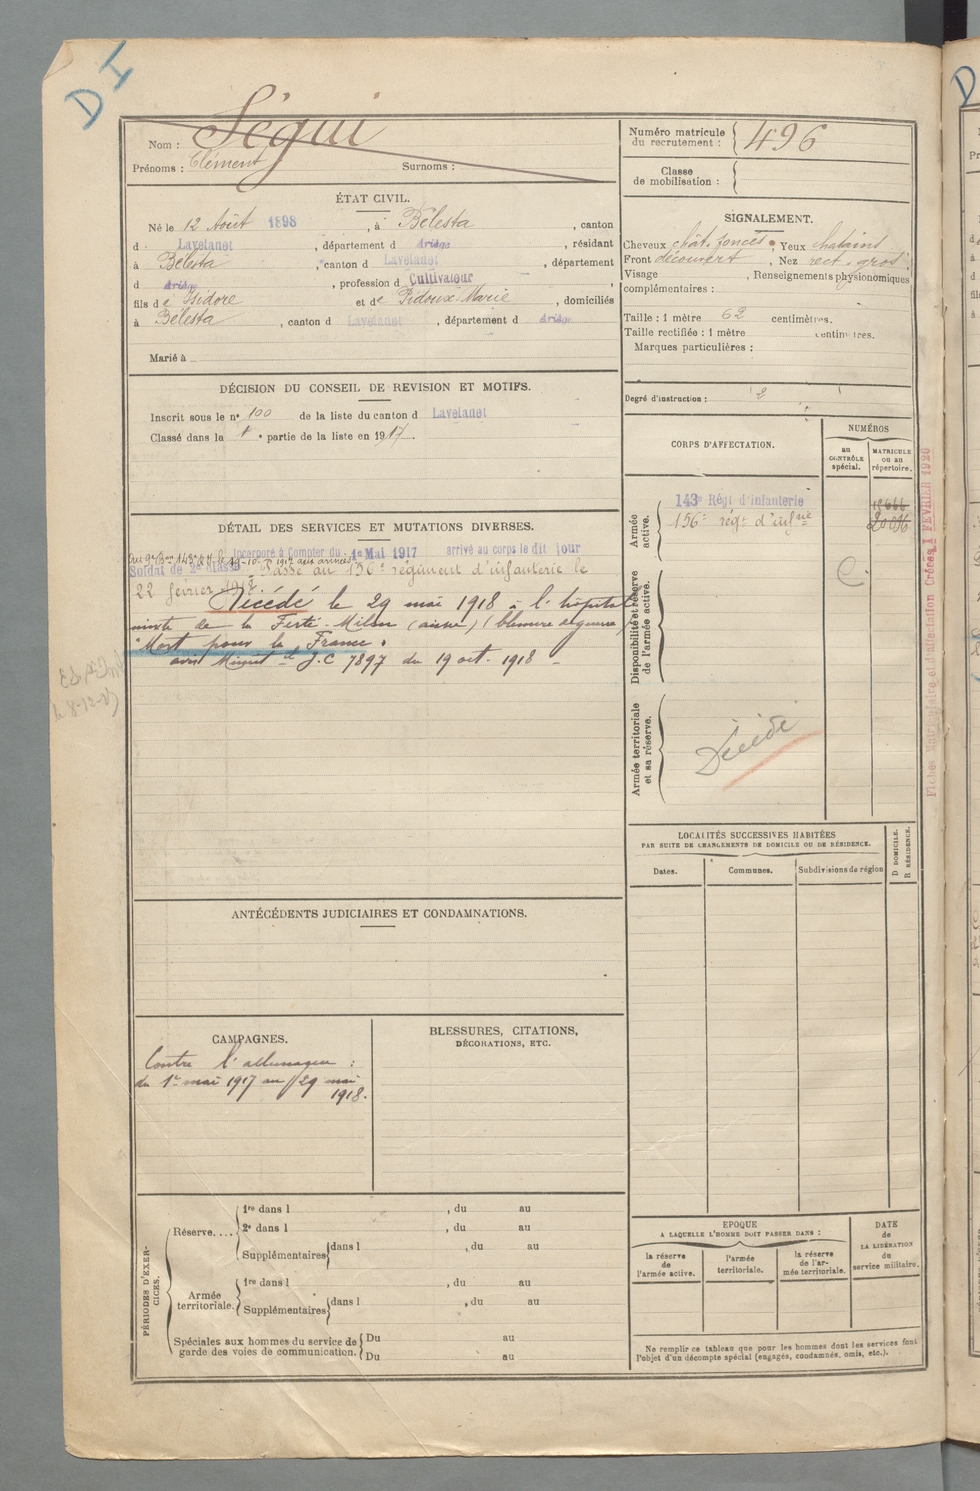 D I
Nom : Ségui
Prénoms : Clément Surnoms :
ÉTAT CIVIL.
Né le 12 Août 1898, à Bélesta, canton
d Lavelanet, département d Ariège, résidant
à Bélesta, canton d Lavelanet, département
d Ariège, profession d Cultivateur,
fils de Isidore et de Pidoux Marie, domiciliés
à Bélesta, canton d Lavelanet, département d Ariège
Marié à
DÉCISION DU CONSEIL DE REVISION ET MOTIFS.
Inscrit sous le nº 100 de la liste du canton d Lavelanet
Classé dans la 1e partie de la liste en 1917.
DÉTAIL DES SERVICES ET MUTATIONS DIVERSES.
Incorporé à Compter du 1e Mai 1917 arrivé au corps le dit jour
Soldat de 2e classe Passé au 156e régiment d'infanterie le
22 février 1918.
Décédé le 29 mai 1918 à l'hôpital
mixte de la Ferté-Milon (aisne) (blessure de guerre)
"Mort pour la France"
avis Minist el J.C 7897 du 19 oct. 1918
ANTÉCÉDENTS JUDICIAIRES ET CONDAMNATIONS.
CAMPAGNES.
Contre l'allemagne :
du 1er mai 1917 au 29 mai
1918.
BLESSURES, CITATIONS,
DÉCORATIONS, ETC.
PÉRIODES D'EXERCICES.
Réserve....
1re dans l , du au
2e dans l , du au
Supplémentaires dans l , du au
Armée
territoriale.
1re dans l , du au
Supplémentaires dans l , du au
Spéciales aux hommes du service de
garde des voies de communication.
Du au
Du au
Numéro matricule
du recrutement : 496
Classe
de mobilisation :
SIGNALEMENT.
Cheveux chât. foncés, Yeux chatains
Front découvert, Nez rect. gros.
Visage , Renseignements physionomiques
complémentaires :
Taille : 1 mètre 62 centimètres.
Taille rectifiée : 1 mètre centimètres.
Marques particulières :
Degré d'instruction : 2
CORPS D'AFFECTATION.
NUMÉROS
au
CONTRÔLE
spécial.
MATRICULE
ou au
répertoire.
Armée
active.
143e Régt d'Infanterie
156e régt d'infrie
Disponibilité et réserve
de l'armée active.
Armée territoriale
et sa réserve.
Décédé
Fiches Matriculaire et d'affectation Créées 1 FÉVRIER 1920
LOCALITÉS SUCCESSIVES HABITÉES
PAR SUITE DE CHANGEMENTS DE DOMICILE OU DE RÉSIDENCE.
D DOMICILE.
R RÉSIDENCE.
Dates. Communes. Subdivisions de région
EPOQUE
A LAQUELLE L'HOMME DOIT PASSER DANS :
la réserve
de
l'armée active.
l'armée
territoriale.
la réserve
de l'armée territoriale.
DATE
de
LA LIBÉRATION
du
service militaire.
Ne remplir ce tableau que pour les hommes dont les services font
l'objet d'un décompte spécial (engagés, condamnés, omis, etc.).